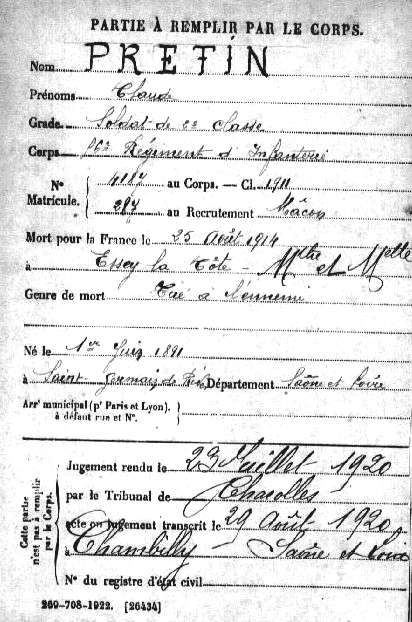 PARTIE À REMPLIR PAR LE CORPS.
Nom PRETIN
Prénoms Claude
Grade Soldat de 2e Classe
Corps Régiment d'Infanterie
N° Matricule. { 4187 au Corps. — Cl. 1911
287 au Recrutement Mâcon
Mort pour la France le 25 Août 1914
à Essey la Côte - Mthe et Melle
Genre de mort Tué à l'ennemi
Né le 1er Juin 1891
à Saint Germain de Département Saône et Loire
Arrt municipal (pr Paris et Lyon), à défaut rue et N°. }
Cette partie n'est pas à remplir par le Corps.
Jugement rendu le 23 Juillet 1920
par le Tribunal de Charolles
acte ou jugement transcrit le 29 Août 1920
à Chambilly - Saône et Loire
N° du registre d'état civil
269-708-1922. [26434]